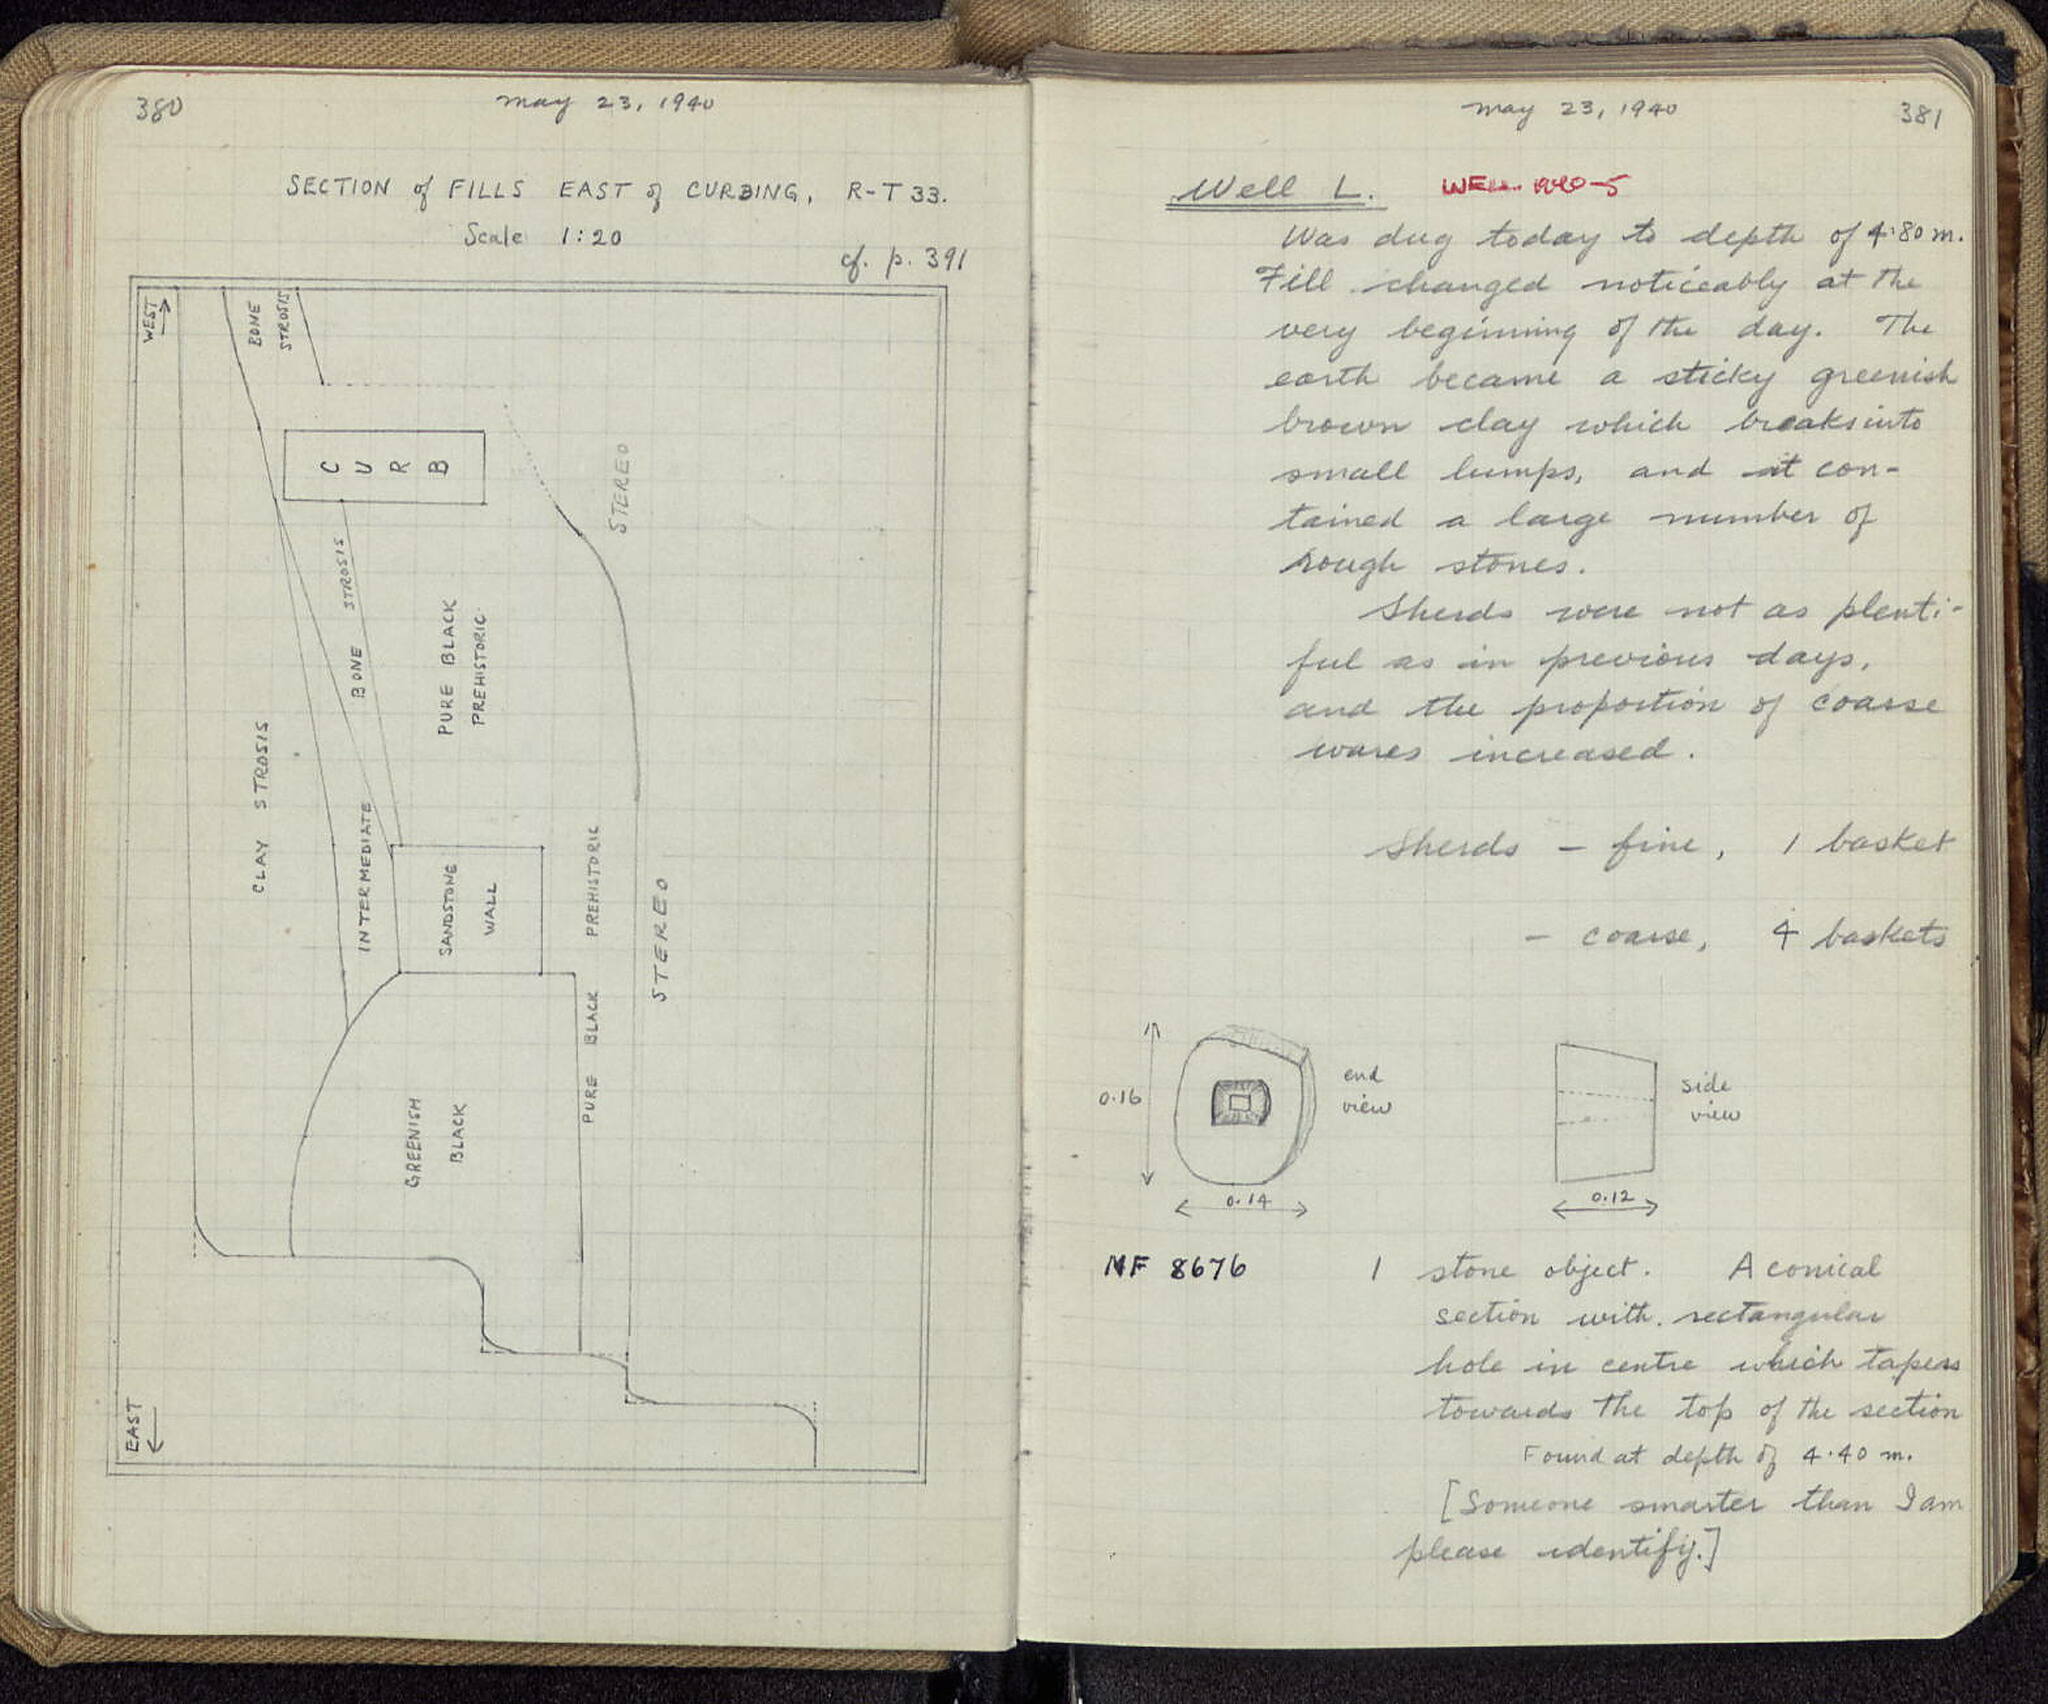 380
May 23, 1940
SECTION of FILLS EAST of CURBING, R-T 33.
Scale 1:20
cf. p. 391
WEST
BONE
STROSIS
CURB
STEREO
BONE STROSIS
PURE BLACK
PREHISTORIC
CLAY STROSIS
INTERMEDIATE
SANDSTONE
WALL
PURE BLACK PREHISTORIC
STEREO
GREENISH
BLACK
EAST
May 23, 1940
381
Well L. WELL 1940-5
Was dug today to depth of 4.80 m.
Fill changed noticeably at the
very beginning of the day. The
earth became a sticky greenish
brown clay which breaks into
small lumps, and it con-
tained a large number of
rough stones.
Sherds were not as plenti-
ful as in previous days,
and the proportion of coarse
wares increased.
Sherds - fine, 1 basket
- coarse, 4 baskets
0.16
end
view
side
view
0.14
0.12
MF 8676
1 stone object. A conical
section with rectangular
hole in centre which tapers
towards the top of the section
Found at depth of 4.40 m.
[Someone smarter than I am
please identify.]